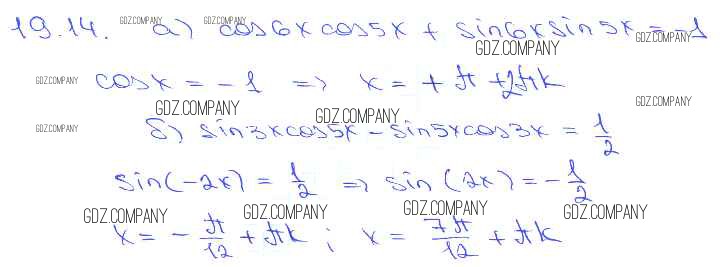 19.14. а) cos6x cos5x + sin6x sin5x = -1
GDZ.COMPANY GDZ.COMPANY GDZ.COMPANY GDZ.COMPANY
cosx = -1 => x = +π+2πk
GDZ.COMPANY GDZ.COMPANY GDZ.COMPANY GDZ.COMPANY
б) sin3xcos5x - sin5xcos3x = 1/2
GDZ.COMPANY
sin(-2x) = 1/2 => sin(2x) = -1/2
GDZ.COMPANY GDZ.COMPANY GDZ.COMPANY GDZ.COMPANY
x = -π/12 + πk ; x = 7π/12 + πk